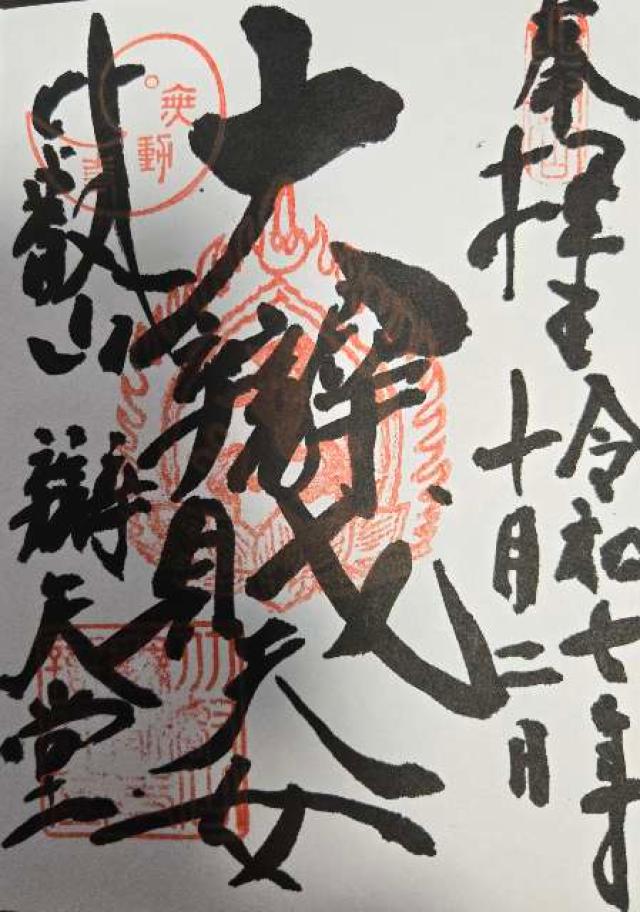 奉拝
令和七年
十月二日
大辯財天女
比叡山 辯天堂
無動